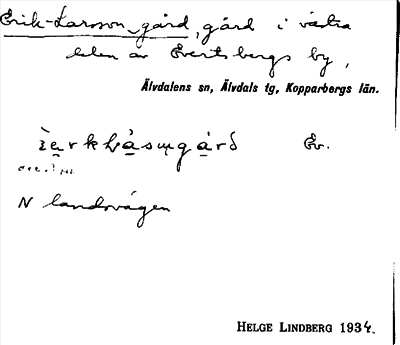 Erik-Larsson-gård, gård i västra
delen av Evertsbergs by,
Älvdalens sn, Älvdals tg, Kopparbergs län.
Ev.
N landsvägen
HELGE LINDBERG 1934.